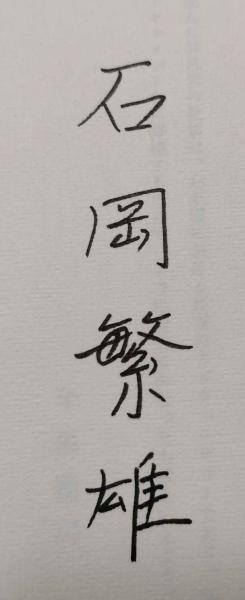 石岡繁雄